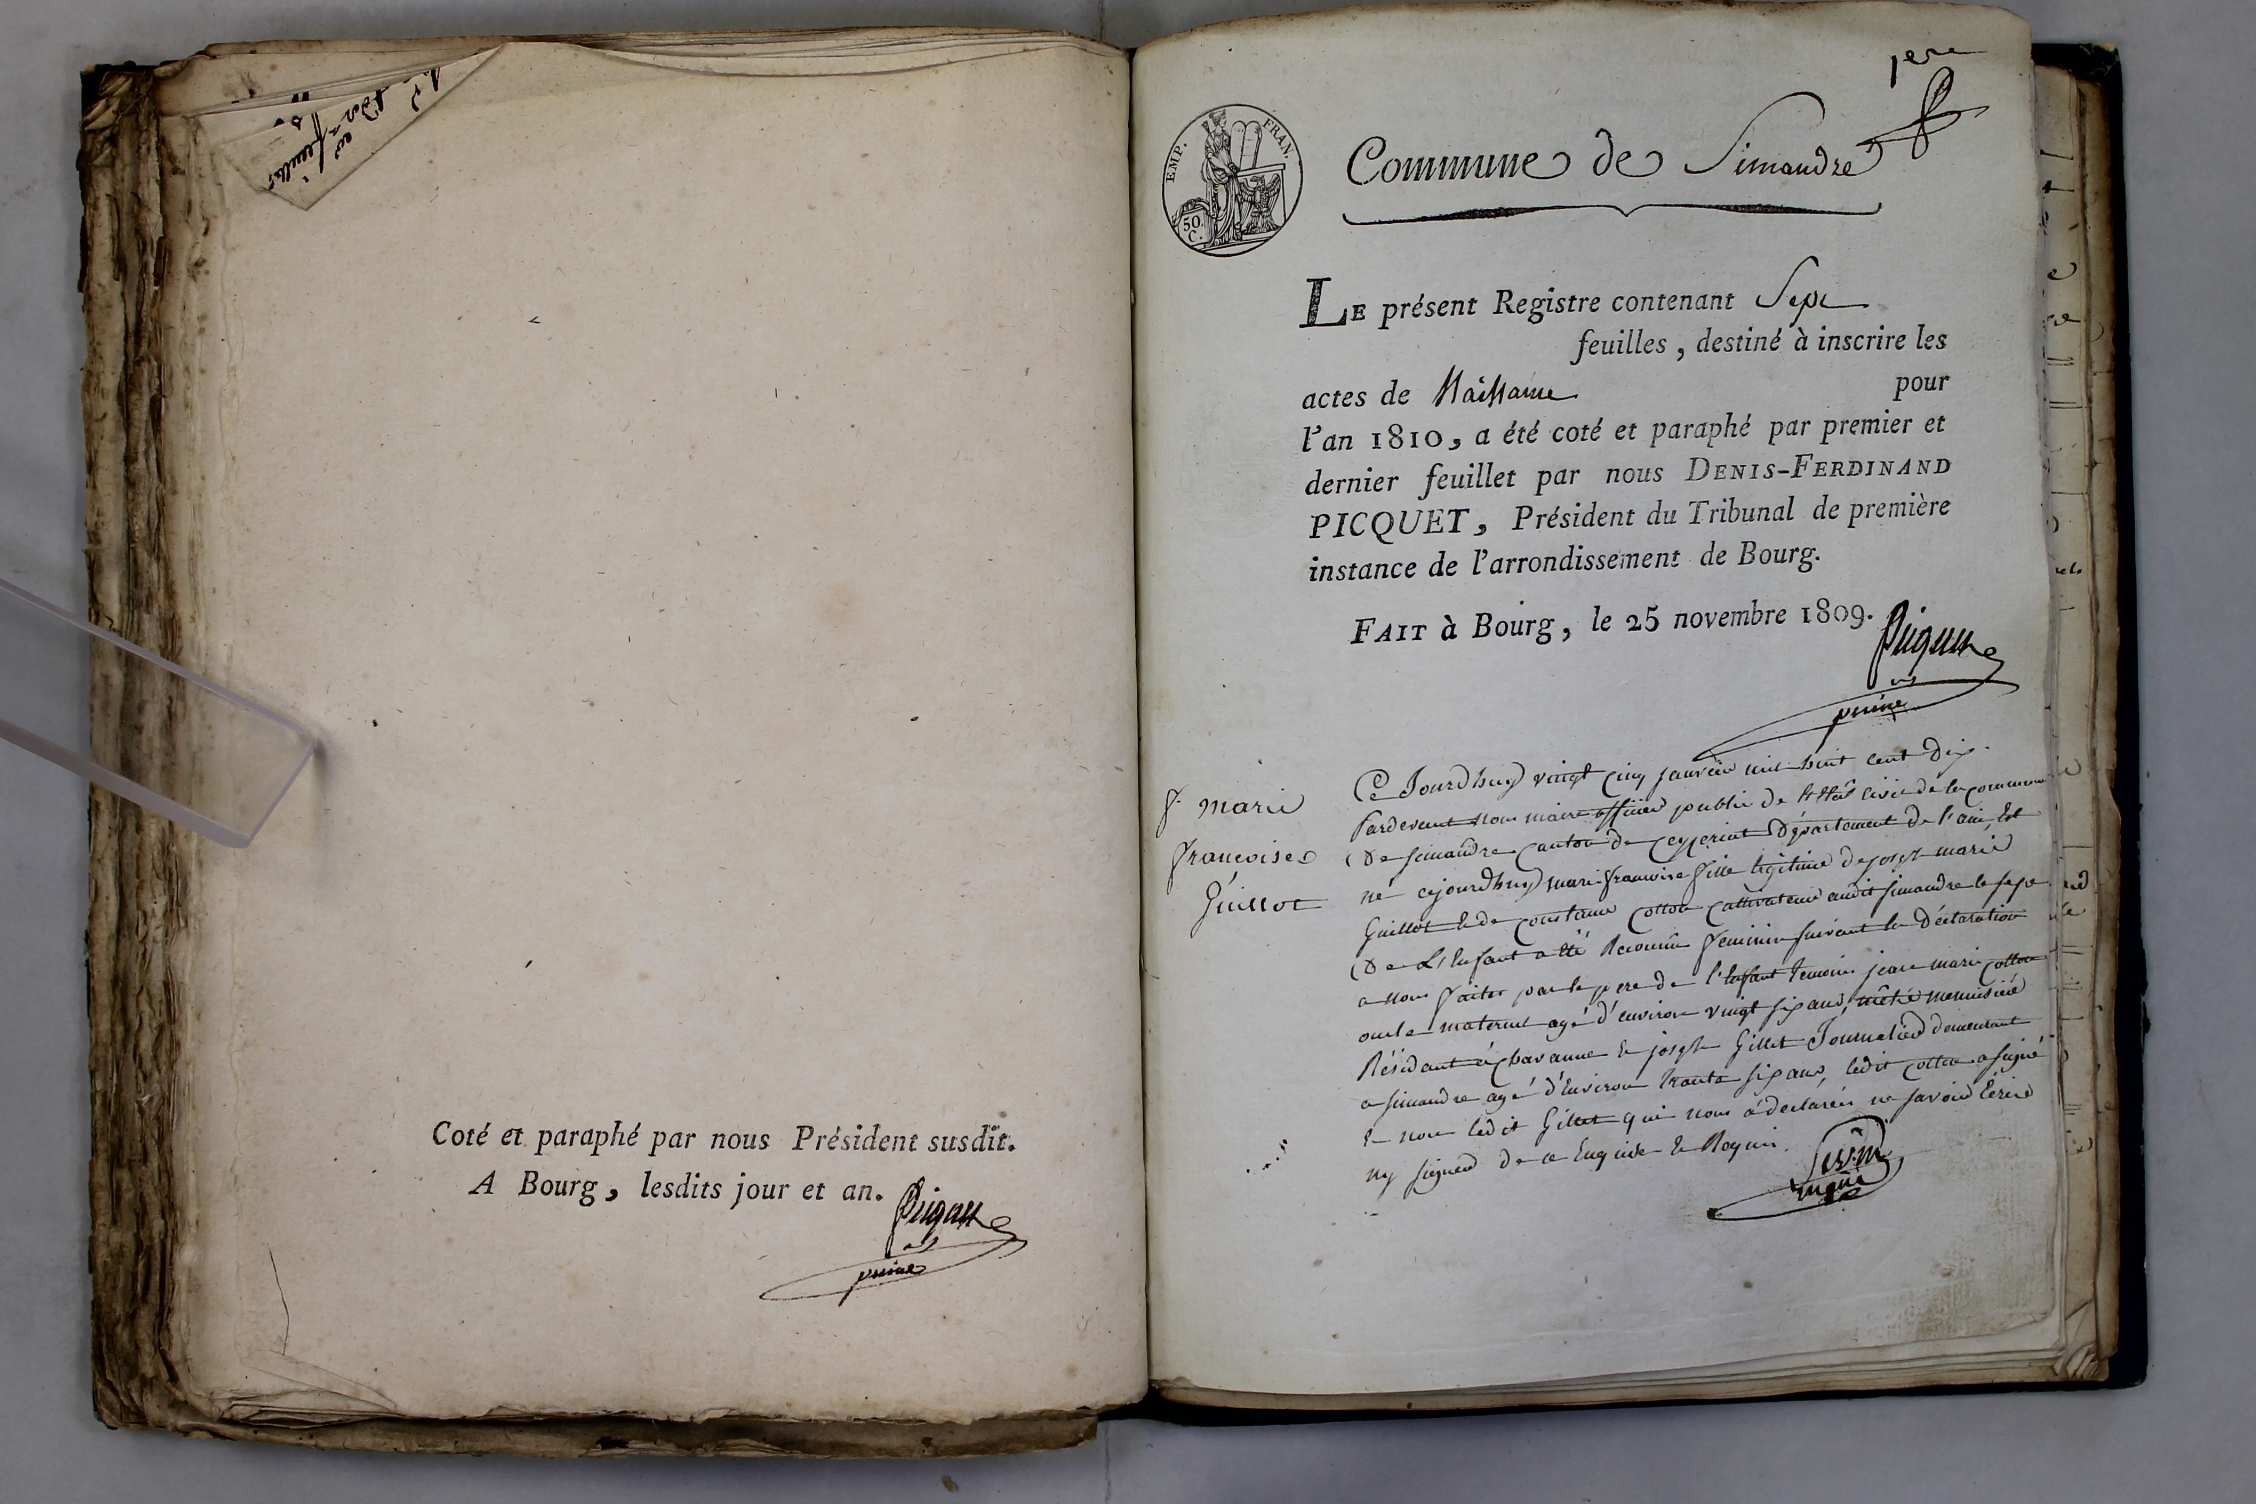 Coté et paraphé par nous Président susdit.
A Bourg, lesdits jour et an.
Picquet
1ere
EMP. FRAN.
50 C.
Commune de Simandre
LE présent Registre contenant Sept
feuilles, destiné à inscrire les
actes de Naissance pour
l'an 1810, a été coté et paraphé par premier et
dernier feuillet par nous DENIS-FERDINAND
PICQUET, Président du Tribunal de première
instance de l'arrondissement de Bourg.
FAIT à Bourg, le 25 novembre 1809.
Picquet
marie
françoise
Guillot
Ce Jourdhuy vingt cinq janvier mil huit cent dix
Pardevant nous maire officier public de l'Etat civil de la commune
De simandre canton de Ceyzeriat Département de l'ain, Est
né cejourdhuy marie françoise fille légitime de joseph marie
Guillot & de constance cotton cultivateur audit simandre le sexe
De L'Enfant a été Reconnu feminin suivant la Déclaration
a nous faites par le pere de l'Enfant Temoins jean marie cotton
oncle maternel agé d'environ vingt six ans, métié menuisié
Résidant a chavanne & joseph Gillet Journalier demeurant
a simandre agé d'Environ trante six ans, ledit cotton a signé
& non ledit Gillet qui nous a déclarés ne savoir Ecrire
ny signer de ce Enquis & Requis.